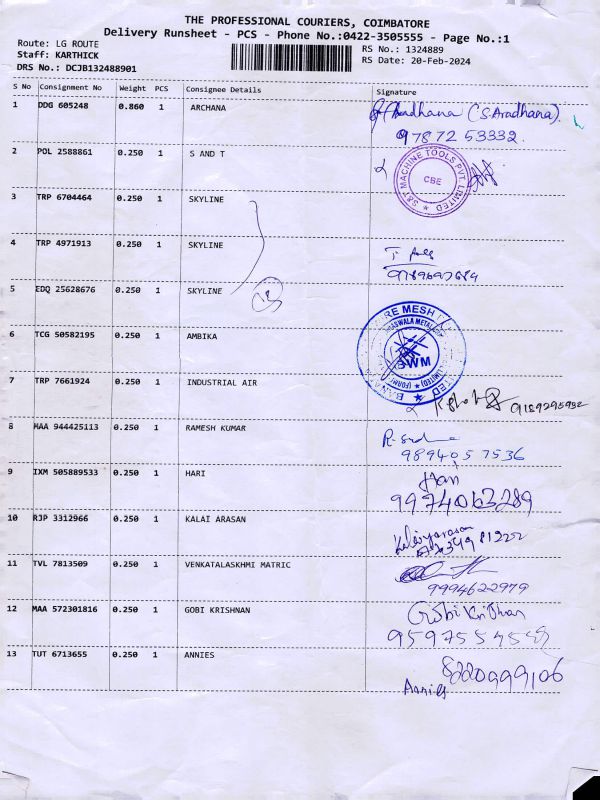 THE PROFESSIONAL COURIERS, COIMBATORE
Delivery Runsheet - PCS - Phone No.:0422-3505555 - Page No.:1
Route: LG ROUTE
Staff: KARTHICK
DRS No.: DCJB132488901
RS No.: 1324889
RS Date: 20-Feb-2024
S No Consignment No Weight PCS Consignee Details Signature
1 DDG 605248 0.860 1 ARCHANA Aradhana (S.Aradhana).
97872 53332.
2 POL 2588861 0.250 1 S AND T
S&T MACHINE TOOLS PVT. LIMITED
CBE
3 TRP 6704464 0.250 1 SKYLINE
4 TRP 4971913 0.250 1 SKYLINE
5 EDQ 25628676 0.250 1 SKYLINE
6 TCG 50582195 0.250 1 AMBIKA
BWM
7 TRP 7661924 0.250 1 INDUSTRIAL AIR
8 MAA 944425113 0.250 1 RAMESH KUMAR
9894057536
9 IXM 505889533 0.250 1 HARI Hari
9974063289
10 RJP 3312966 0.250 1 KALAI ARASAN Kalaiyarasan
11 TVL 7813509 0.250 1 VENKATALASKHMI MATRIC
9994622979
12 MAA 572301816 0.250 1 GOBI KRISHNAN
13 TUT 6713655 0.250 1 ANNIES 8220999106
Annies